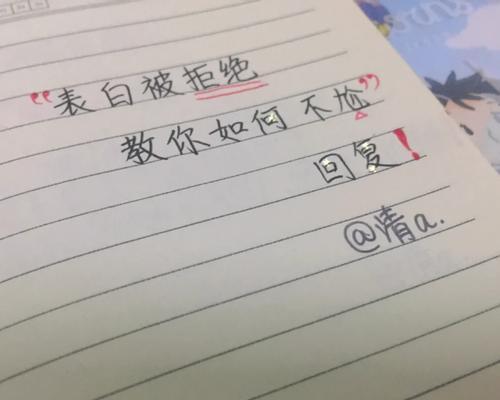 “表白被拒绝
教你如何不尬”
回复！
@清a.